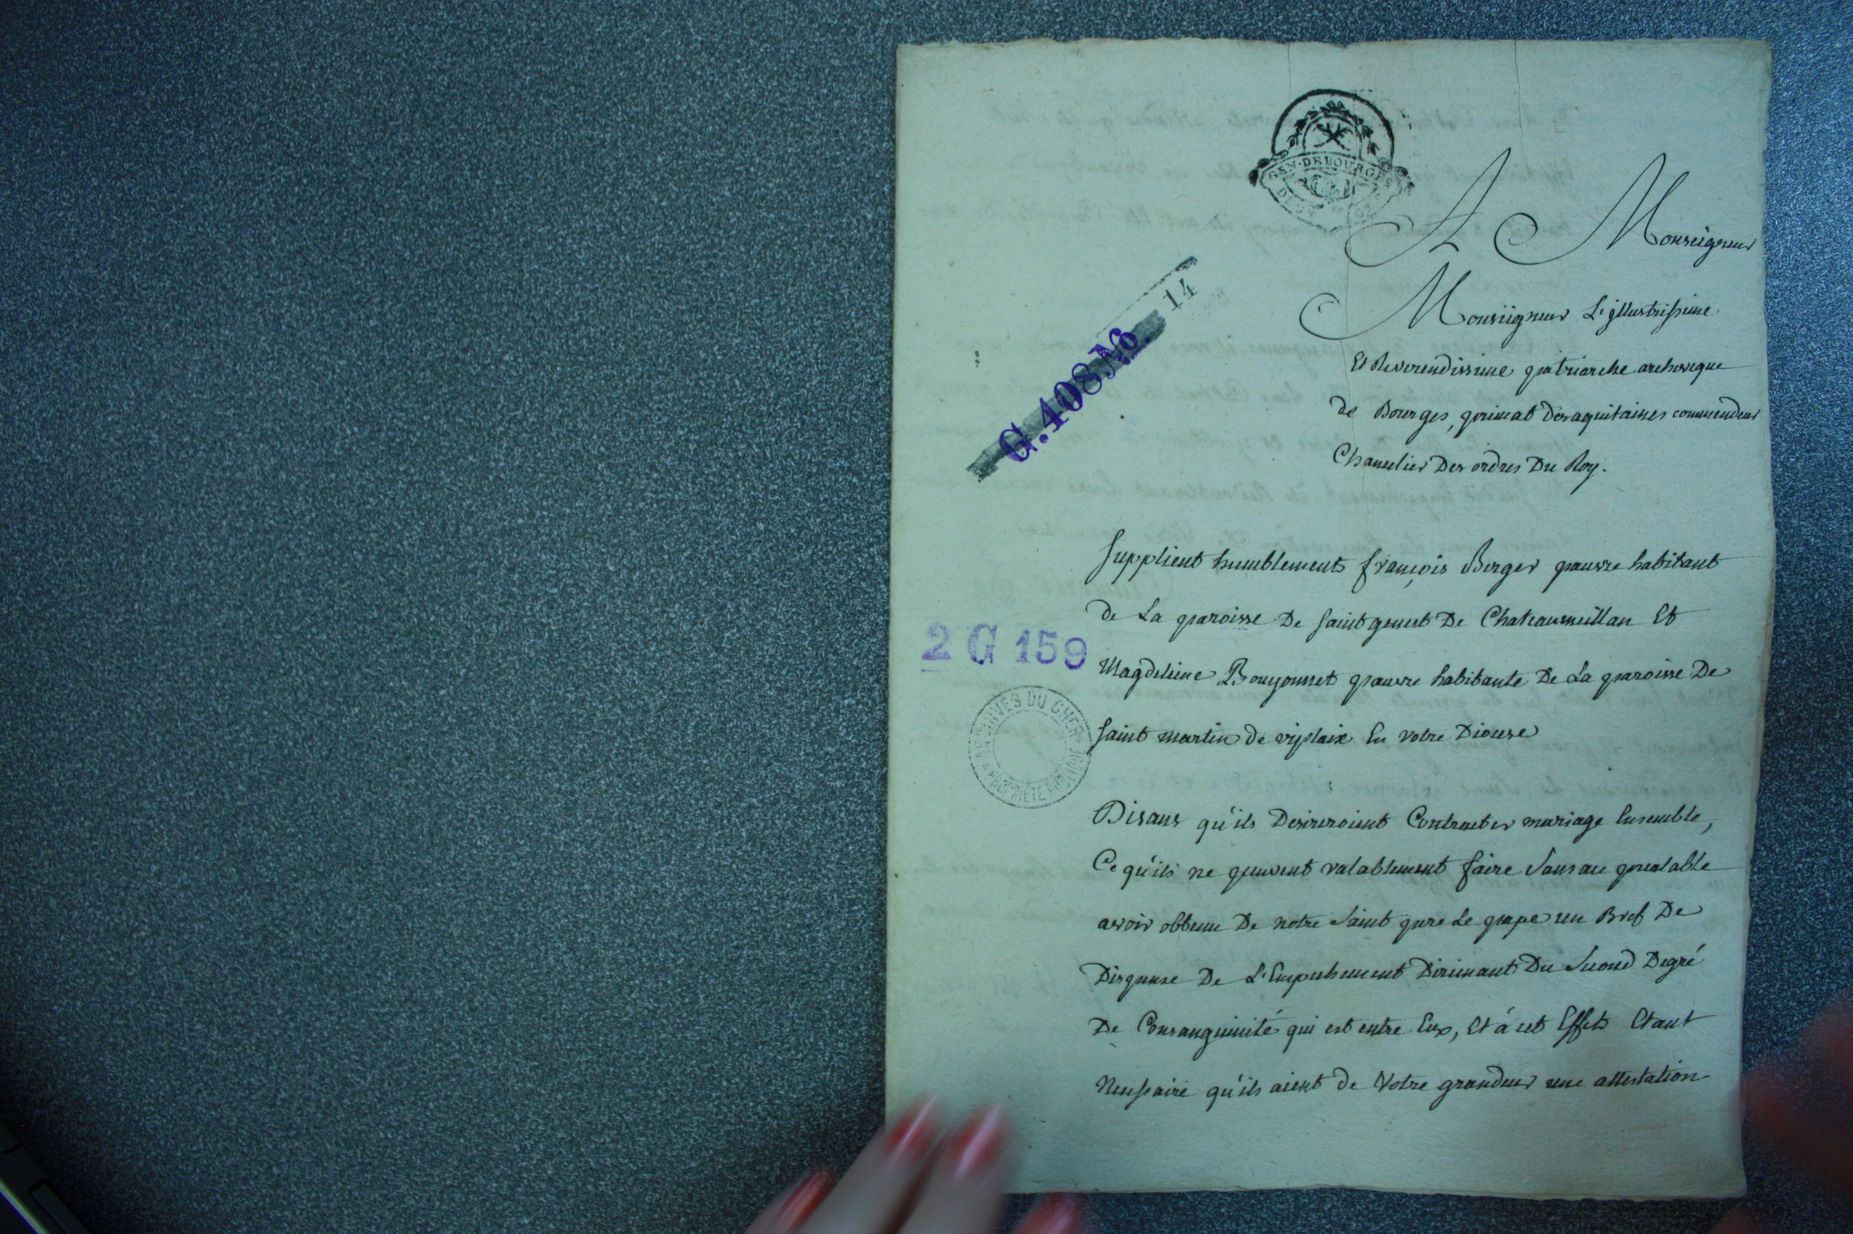 GEN·DE BOURGES
A Monseigneur
Monseigneur L'jllustrissime
Et Reverendissime patriarche archeveque
de Bourges, primat des aquitaines commendeur
Chancelier Des ordres Du Roy.
14
G.408 N6.
Supplient humblement françois Berger pauvre habitant
de La paroisse De saint genest De Chateaumeillan Et
Magdeleine Bouyonnet pauvre habitante De La paroisse De
saint martin de viplaix En votre Diocese
2 G 159
ARCHIVES DU CHER
PROPRIÉTÉ PUBLIQUE
Disans qu'ils Desireroient Contracter mariage Ensemble,
Ce qu'ils ne peuvent valablement faire sans au prealable
avoir obtenu De notre saint pere Le pape un Bref De
Dispense De L'Empechement Dirimant Du second Degré
De Consanguinité qui est entre Eux, Et á cet Effets Etant
Necessaire qu'ils aient de Votre grandeur une attestation